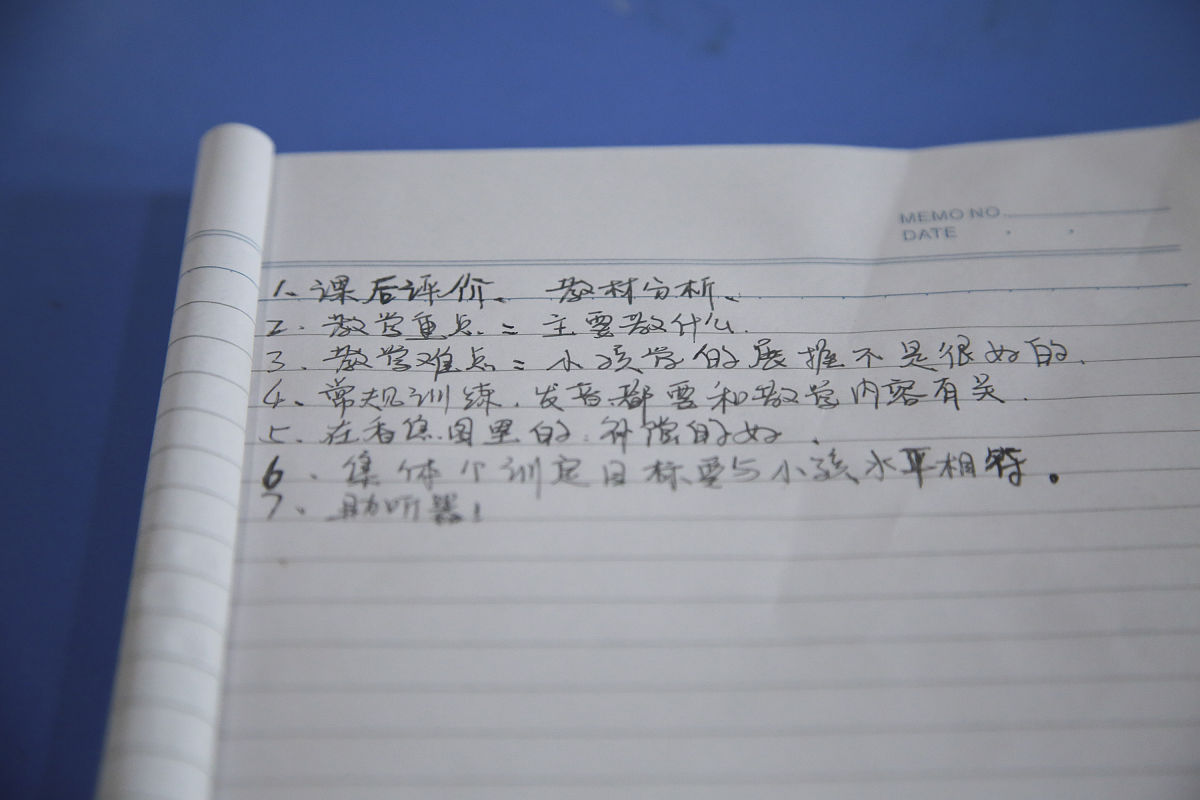 MEMO NO.
DATE
1、课后评价、教材分析、
2、教学重点：主要教什么.
3、教学难点：小孩学的展推不是很好的.
4、常规训练.发音.都要和教学内容有关.
5、在香蕉图里的.补偿的好.
6、集体个训定目标要与小孩水平相符。
7、助听器!